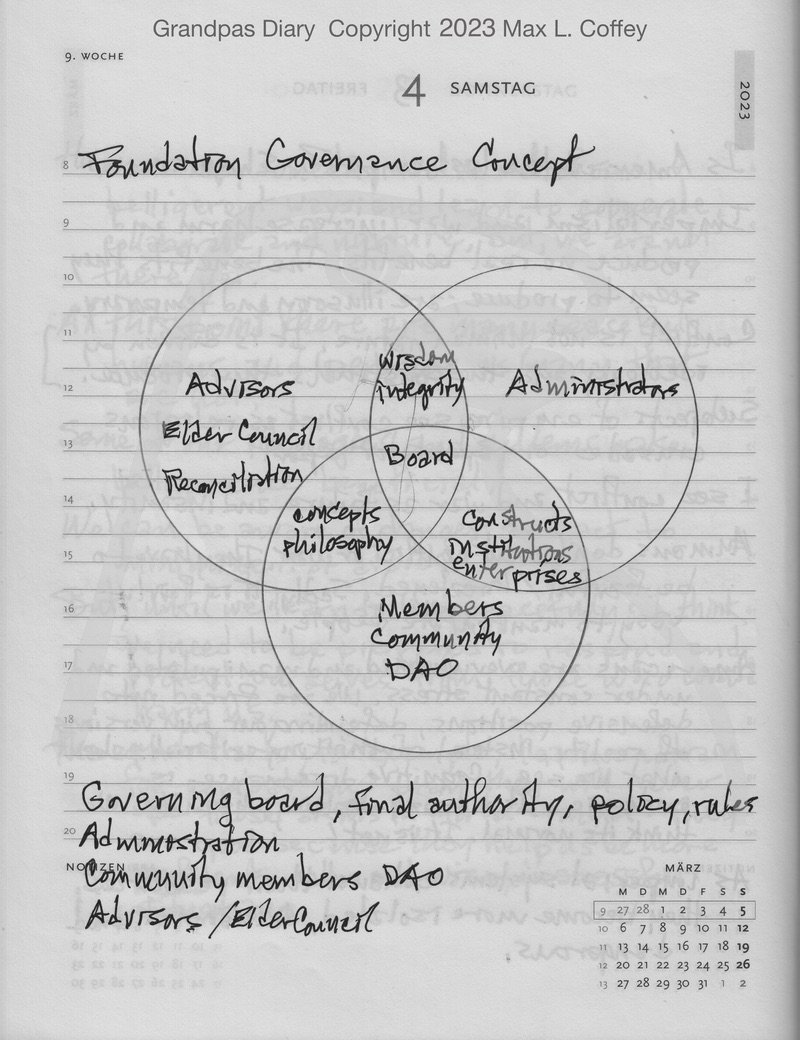 Grandpas Diary Copyright 2023 Max L. Coffey
9. WOCHE
4 SAMSTAG
2023
Foundation Governance Concept
8
9
10
11
12
13
14
15
16
17
18
19
20
wisdom
integrity
Advisors
Administrators
Elder Council
Board
Reconciliation
concepts
philosophy
constructs
institutions
enterprises
Members
Community
DAO
Governing board, final authority, policy, rules
Administration
NOTIZEN
Community members DAO
Advisors / Elder Council
MÄRZ
M D M D F S S
9 27 28 1 2 3 4 5
10 6 7 8 9 10 11 12
11 13 14 15 16 17 18 19
12 20 21 22 23 24 25 26
13 27 28 29 30 31 1 2